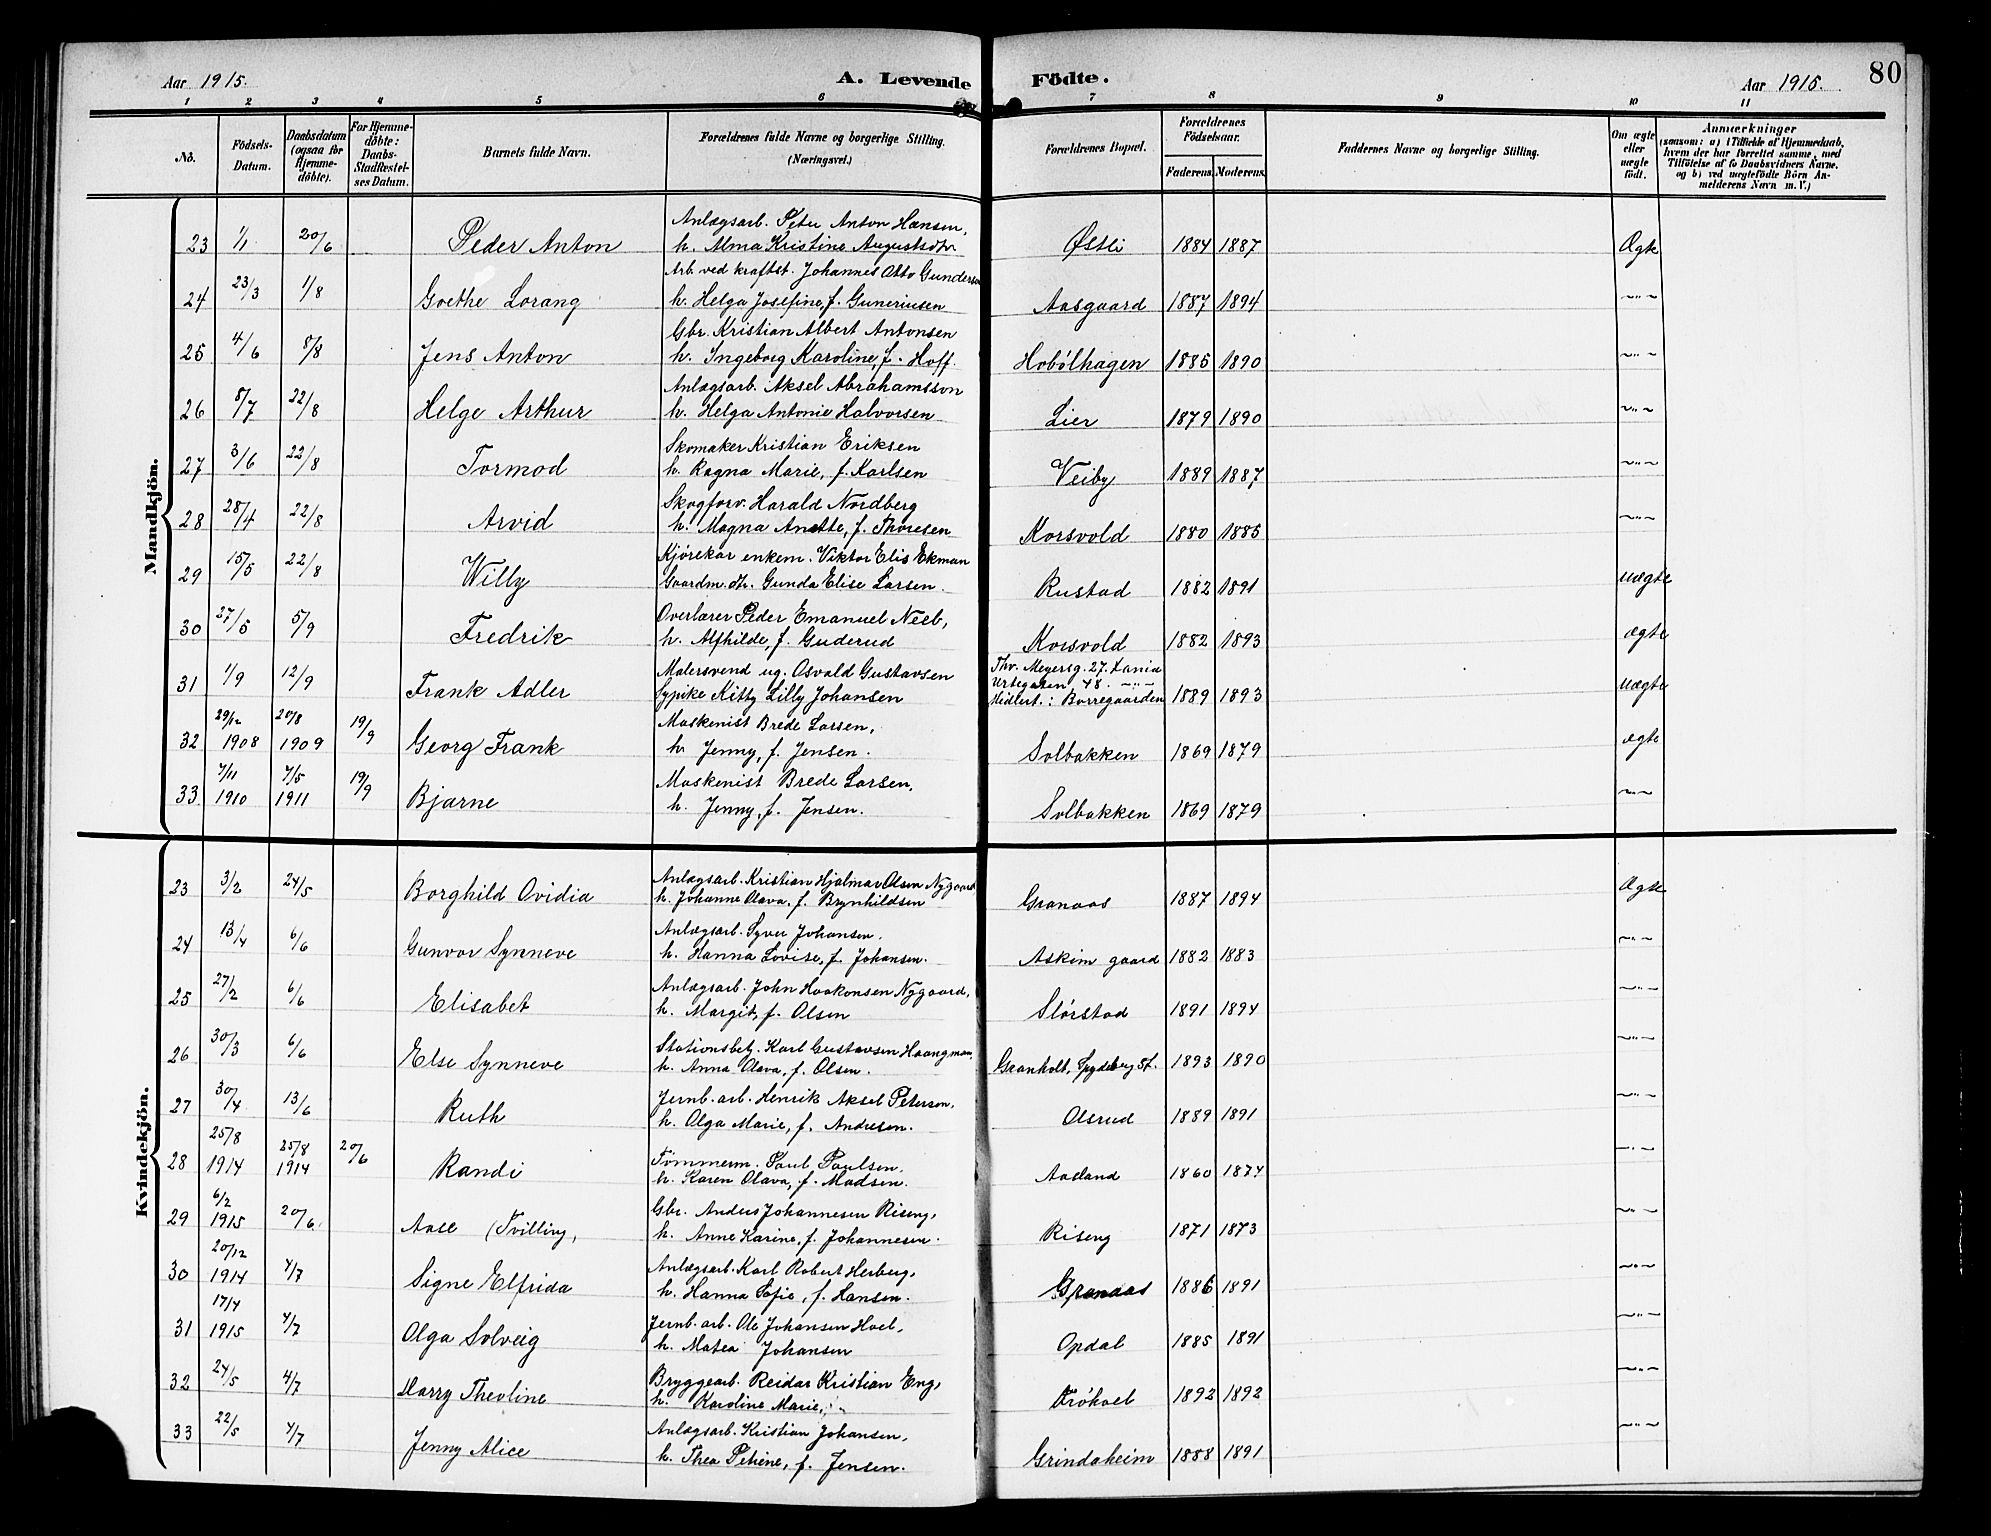 Aar 1915.
A. Levende Födte.
Aar 1915.
80
1 2 3 4 5 6 7 8 9 10 11
No.
Födsels-Datum.
Daabsdatum (ogsaa for Hjemme-döbte).
For Hjemme-döbte: Daabs-Stadfæstel-ses Datum.
Barnets fulde Navn.
Forældrenes fulde Navne og borgerlige Stilling. (Næringsvei.)
Forældrenes Bopæl.
Forældrenes Födselsaar.
Faderens. Moderens.
Faddernes Navne og borgerlige Stilling.
Om ægte eller uægte födt.
Anmærkninger
(saasom: a) i Tilfælde af Hjemmedaab, hvem der har forrettet samme, med Tilföielse af to Daabsvidners Navne, og b) ved uægtefödte Börn An-melderens Navn m. V.)
Mandkjön.
23 1/1 20/6 Peder Anton Anlægsarb. Peter Anton Hansen, Østli 1884 1887 Ægte
h. Alma Kristine Augustsdtr.
24 23/3 1/8 Goethe Lorang Arb. ved kraftst. Johannes Otto Gunderse Aasgaard 1887 1894 -"-
h. Helga Josefine, f. Guneriusen
25 4/6 8/8 Jens Anton Gbr. Kristian Albert Antonsen Hobölhagen 1885 1890 -"-
h. Ingeborg Karoline, f. Hoff.
26 8/7 22/8 Helge Arthur Anlægsarb. Aksel Abrahamsson Lier 1879 1890 -"-
h. Helga Antonie Halvorsen
27 3/6 22/8 Tormod Skomaker Kristian Eriksen Veiby 1889 1887 -"-
h. Ragna Marie, f. Karlsen
28 28/4 22/8 Arvid Skogforv. Harald Nordberg Korsvold 1880 1885 -"-
h. Magna Anette, f. Thoresen
29 15/5 22/8 Willy Kjørekar enkem. Viktor Elis Ekman Rustad 1882 1891 uægte
Gaardm. dtr. Gunda Elise Larsen.
30 27/5 5/9 Fredrik Overlærer Peder Emanuel Neeb, Korsvold 1882 1893 ægte
h. Alfhilde, f. Guderud
31 1/9 12/9 Frank Adler Malersvend ug. Osvald Gustavsen Thv. Meyersg. 27. Xania
Sypike Kitty Lilly Johansen Urtegaten 48. -"-
Midlert.: Borregaarden 1889 1893 uægte
32 29/12 1908 20/8 1909 19/9 Georg Frank Maskenist Brede Larsen, Solbakken 1869 1879 ægte
h. Jenny, f. Jensen.
33 7/11 1910 7/5 1911 19/9 Bjarne Maskenist Brede Larsen, Solbakken 1869 1879 -"-
h. Jenny, f. Jensen.
Kvindekjön.
23 3/2 24/5 Borghild Ovidia Anlægsarb. Kristian Hjalmar Olsen Nygaard Granaas 1887 1894 Ægte
h. Johanne Olava, f. Brynhildsen
24 13/4 6/6 Gunvor Synneve Anlægsarb. Syver Johansen. Askim gaard 1882 1883 -"-
h. Hanna Lovise, f. Johansen.
25 27/2 6/6 Elisabet Anlægsarb. John Haakonsen Nygaard, Slörstad 1891 1894 -"-
h. Margit, f. Olsen
26 30/3 6/6 Else Synneve Stationsbetj. Karl Gustavsen Haangman, Granholt, Spydeberg St. 1893 1890 -"-
h. Anna Olava, f. Olsen.
27 30/4 13/6 Ruth Jernb. arb. Henrik Aksel Peterson, Olsrud 1889 1891 -"-
h. Olga Marie, f. Andresen.
28 25/8 1914 25/8 1914 20/6 Randi Tømmerm. Paul Paulsen, Aadland 1860 1874 -"-
h. Karen Olava, f. Madsen.
29 6/2 1915 20/6 Aase (Tvilling, Gbr. Anders Johannesen Riseng, Riseng 1871 1873 -"-
h. Anne Karine, f. Johannesen.
30 20/12 1914 4/7 Signe Elfrida Anlægsarb. Karl Robert Herberg, Granaas 1886 1891 -"-
h. Hanna Sofie, f. Hansen.
31 17/4 1915 4/7 Olga Solveig Jernb. arb. Ole Johansen Hoel, Opdal 1885 1891 -"-
h. Matea Johansen
32 24/5 4/7 Harry Theoline Bryggearb. Reidar Kristian Eng, Frökoel 1892 1892 -"-
h. Karoline Marie,
33 22/5 4/7 Jenny Alice Anlægsarb. Kristian Johansen, Grindaheim 1888 1891 -"-
h. Thea Petrine, f. Jensen.